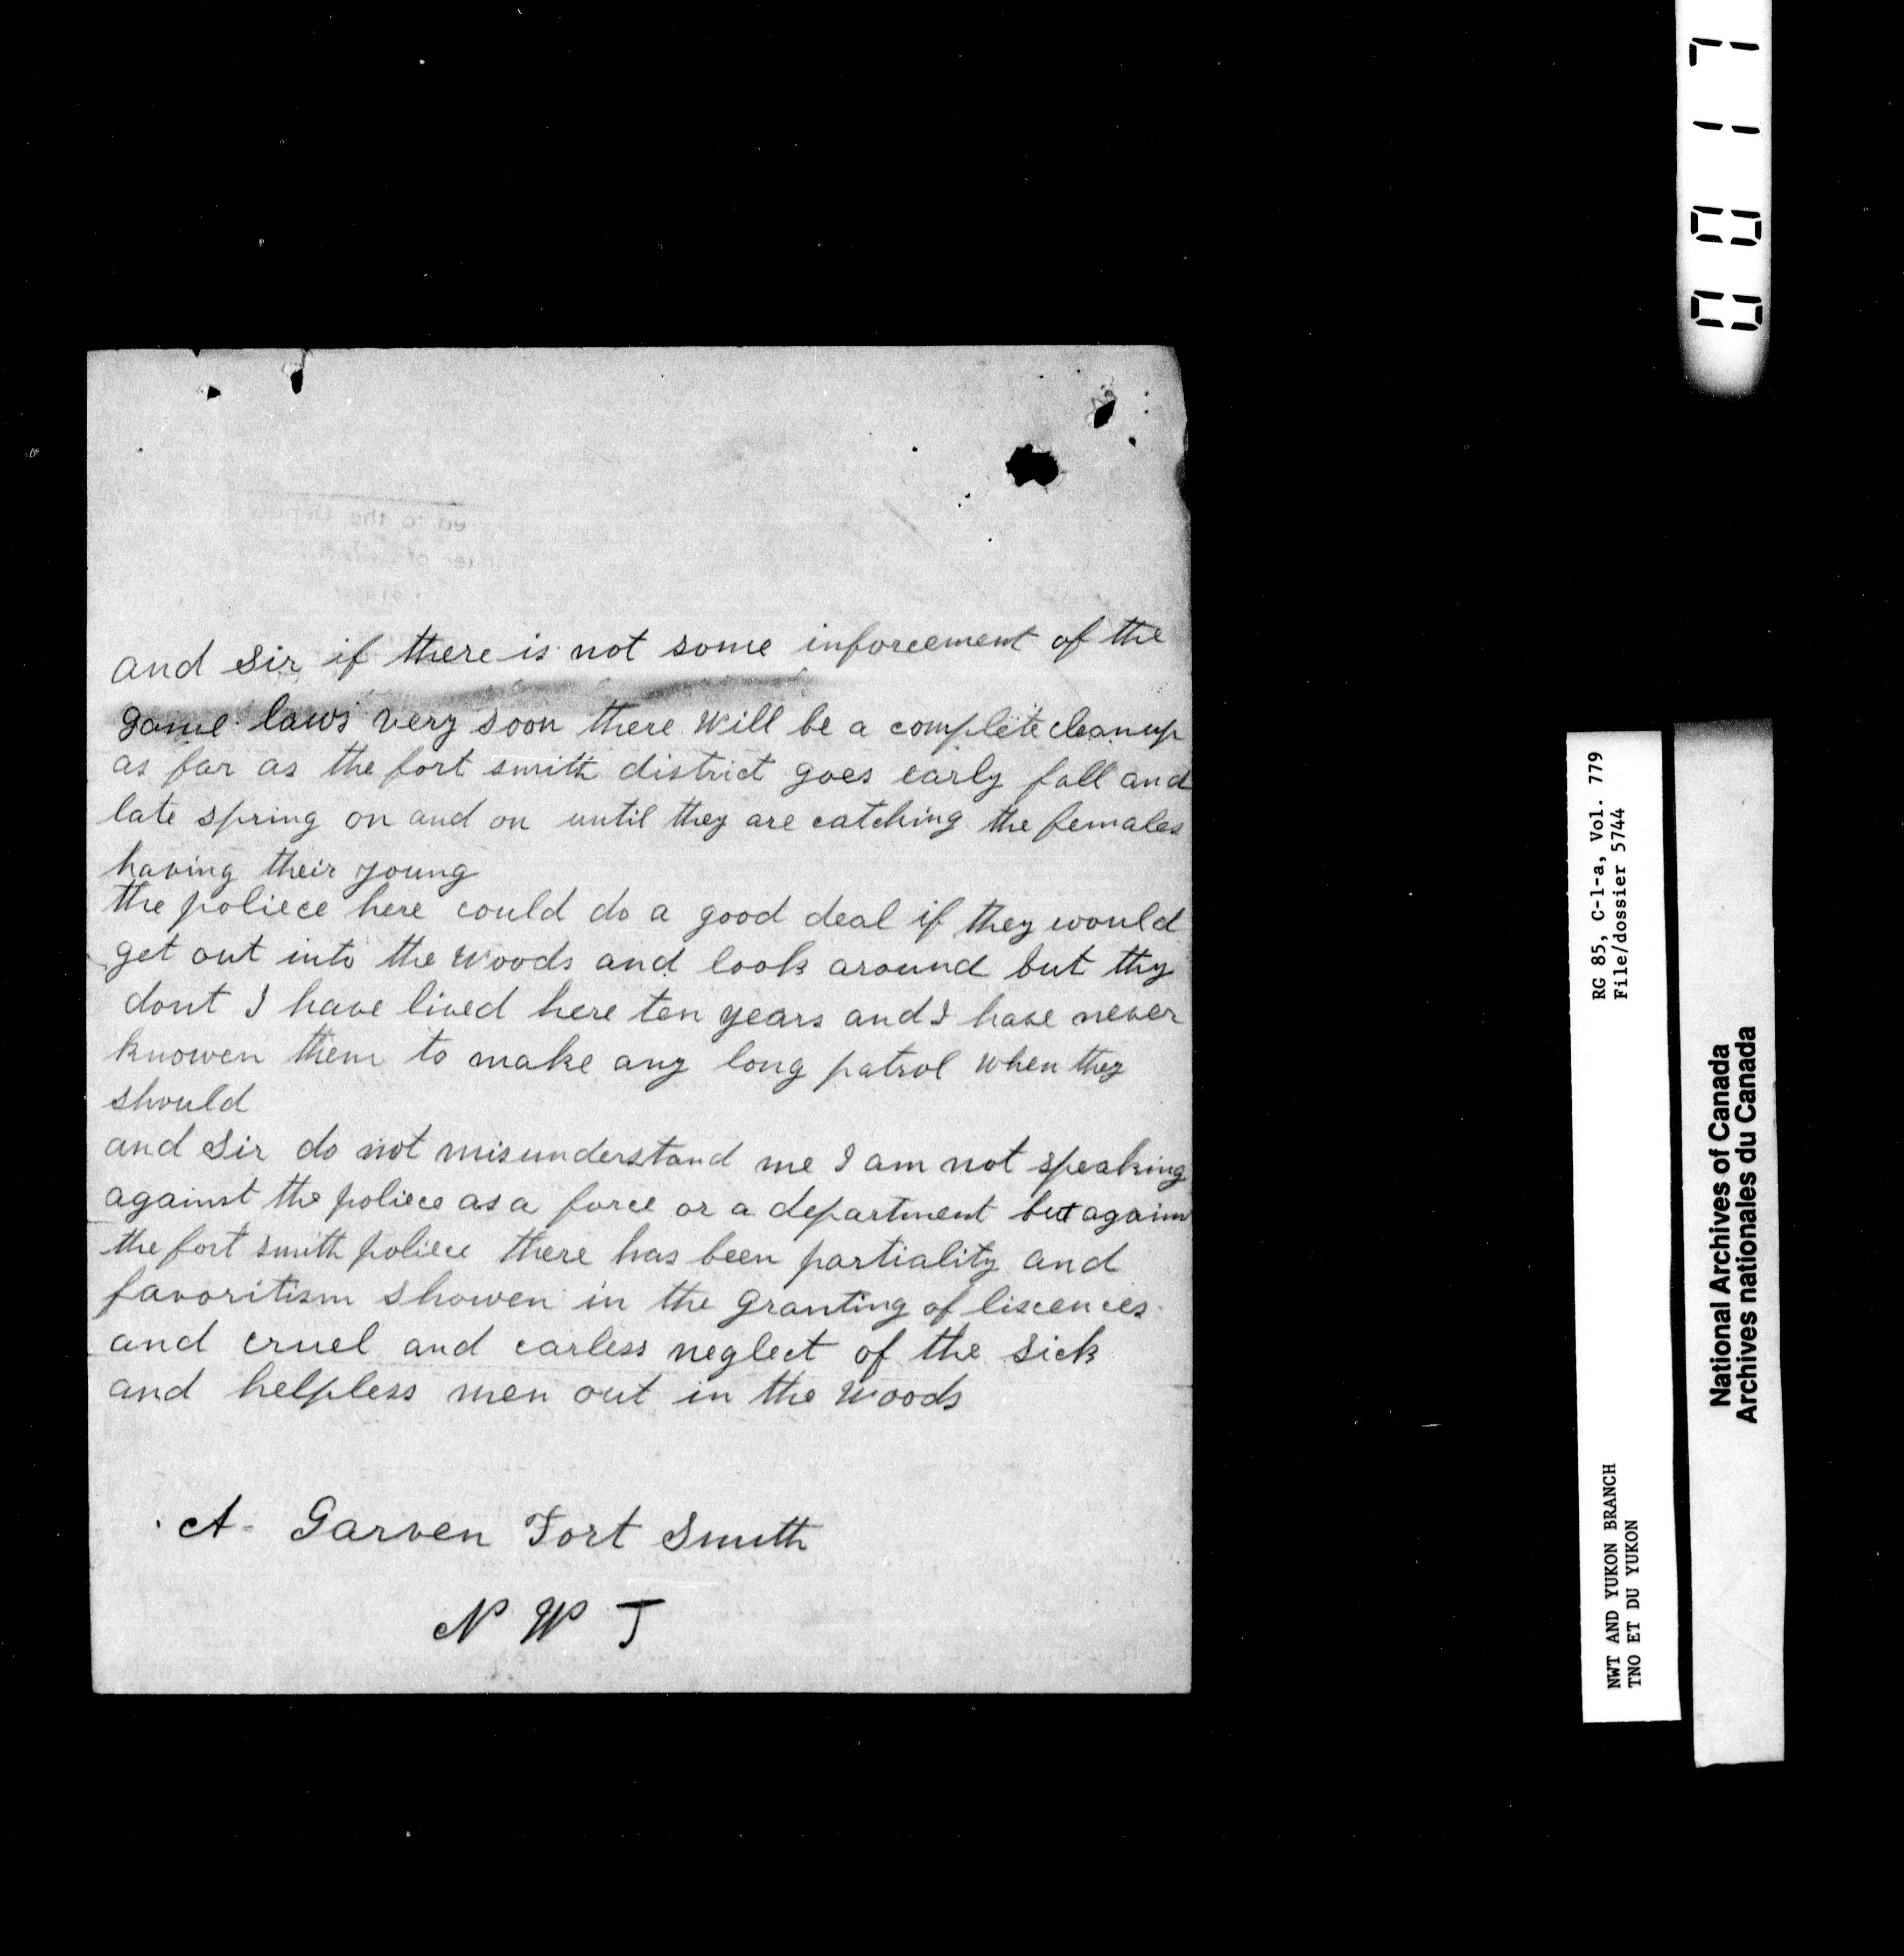 and Sir if there is not some inforcement of the
game laws very soon there will be a complete cleanup
as far as the fort smith district goes early fall and
late spring on and on until they are catching the females
having their young
the poliece here could do a good deal if they would
get out into the woods and look around but thy
dont I have lived here ten years and I have never
knowen them to make any long patrol when they
should
and Sir do not misunderstand me I am not speaking
against the poliece as a force or a department but again
the fort smith poliece there has been partiality and
favoritism showen in the granting of liscences
and cruel and carless neglect of the sick
and helpless men out in the woods
A. Garven Fort Smith
N W T
RG 85, C-1-a, Vol. 779
File/dossier 5744
NWT AND YUKON BRANCH
TNO ET DU YUKON
National Archives of Canada
Archives nationales du Canada